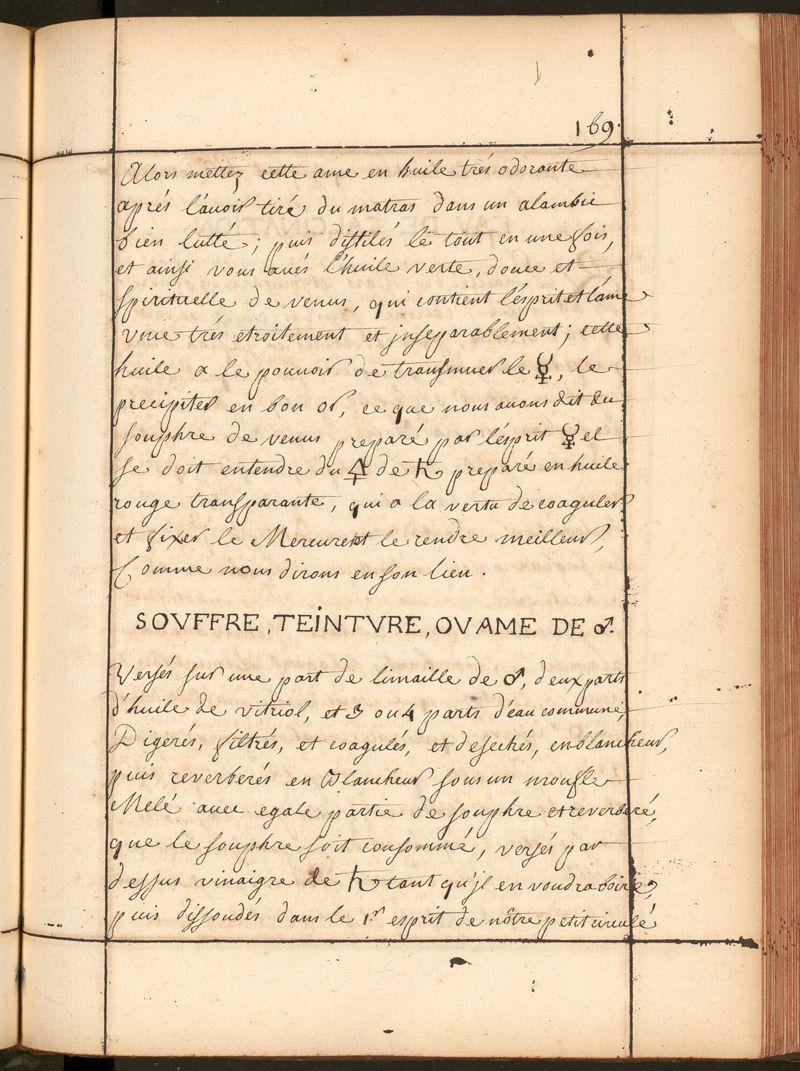 169.
Alors mettez cette ame en huile trés odorante
aprés l'avoir tiré du matras dans un alambic
bien lutté; puis distilés le tout en une fois,
et ainsi vous avés l'huile verte, douce et
spirituelle de venus, qui contient l'esprit et l'ame
unie trés etroitement et inseparablement; cette
huile a le pouvoir de transmuer le ☿, le
precipiter en bon or, ce que nous avons dit du
souphre de venus preparé par l'esprit ☿ el
se doit entendre du 🜍 de ♄ preparé en huile
rouge transparante, qui a la vertu de coaguler
et fixer le Mercure et le rendre meilleur,
Comme nous dirons en son lieu.
SOVFFRE, TEINTVRE, OV AME DE ♂.
Versés sur une part de limaille de ♂, deux parts
d'huile de vitriol, et 3 ou 4 parts d'eau commune,
Digerés, filtrés, et coagulés, et desechés, en blancheur,
puis reverberés en blancheur sous un moufle
Melé avec egale partie de souphre et reverberé,
que le souphre soit consommé, versés par
dessus vinaigre de ♄ tant qu'il en voudra boire,
puis dissoudés dans le 1er esprit de nôtre petit circulé